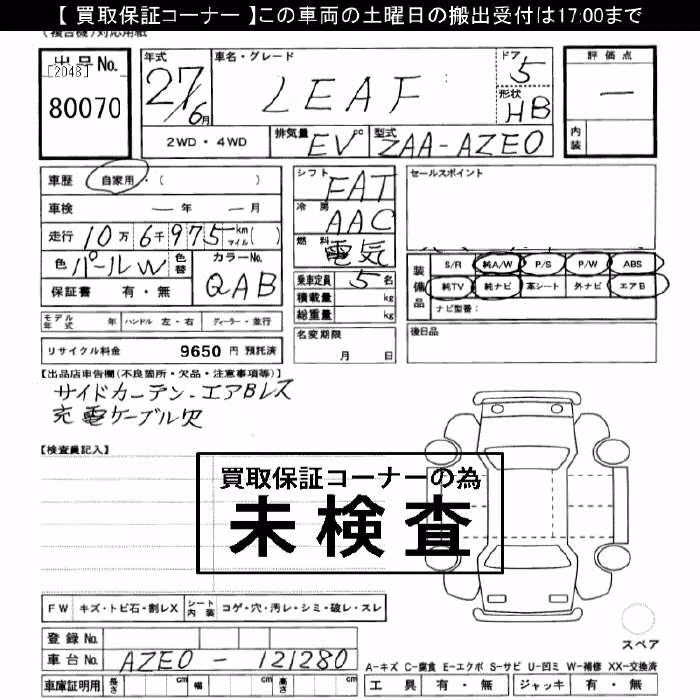 【 買取保証コーナー 】この車両の土曜日の搬出受付は17:00まで
(複合機)対応用紙
出品No.
[2048]
80070
年式
27/6月
車名・グレード
LEAF
ドア
5
形状
HB
2WD・4WD
排気量
EV cc
型式
ZAA-AZE0
評価点
―
内装
車歴 自家用・( )
車検 ― 年 ― 月
走行 10万6千975 km マイル( )
色 パールW 色替
カラーNo.
QAB
保証書 有・無
モデル年式 年 ハンドル 左・右 ディーラー・並行
リサイクル料金 9650 円 預託済
シフト
FAT
冷房
AAC
燃料
電気
乗車定員 5 名
積載量 kg
総重量 kg
名変期限
月 日
セールスポイント
装備品
S/R 純A/W P/S P/W ABS
純TV 純ナビ 革シート 外ナビ エアB
ナビ型番:
後日品
【出品店車告欄(不良箇所・欠品・注意事項等)】
サイドカーテン-エアBレス
充電ケーブル欠
【検査員記入】
買取保証コーナーの為
未検査
FW キズ・トビ石・割レX シート内装 コゲ・穴・汚レ・シミ・破レ・スレ
登録No.
車台No. AZE0-121280
車庫証明用 長さ cm 幅 cm 高さ cm
スペア
A-キズ C-腐食 E-エクボ S-サビ U-凹ミ W-補修 XX-交換済
工具 有・無 ジャッキ 有・無